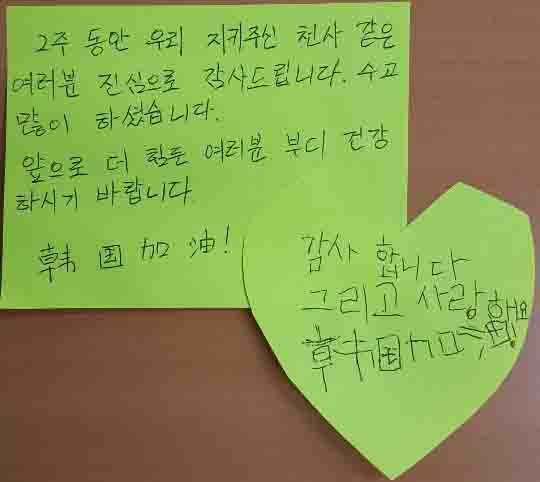 2주 동안 우리 지켜주신 천사 같은
여러분 진심으로 감사드립니다. 수고
많이 하셨습니다.
앞으로 더 힘든 여러분 부디 건강
하시기 바랍니다.
韩国加油!
감사 합니다
그리고 사랑해요
韩国加油!